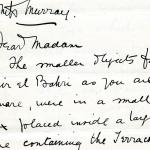 Murray.
ear Madam
The smaller objects f
ir el Bahri as you are
ware, were in a small
x placed inside a la
e containing the Terrac